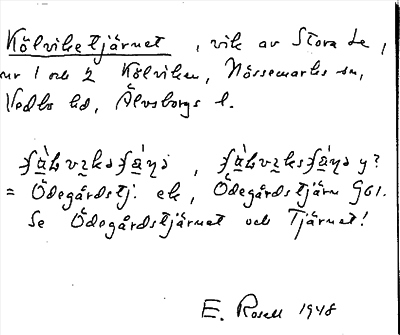 Kölviketjärnet, vik av Stora Le,
nr 1 och 2 Kölviken, Nössemarks sn,
Vedbo hd, Älvsborgs l.
= Ödegårdstj. ek, Ödegårdstjärn G61.
Se Ödegårdstjärnet och Tjärnet!
E. Rosell 1948